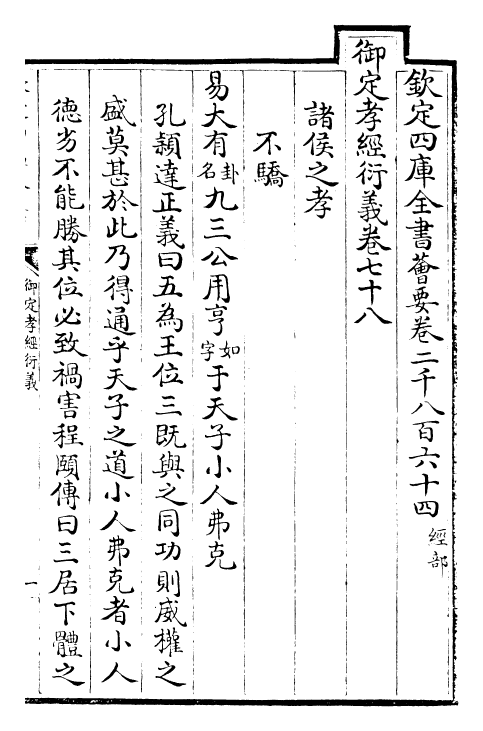 欽定四庫全書薈要卷二千八百六十四 經部
御定孝經衍義卷七十八
諸侯之孝
不驕
易大有卦名九三公用亨如字于天子小人弗克
孔穎達正義曰五為王位三既與之同功則威權之
盛莫甚於此乃得通乎天子之道小人弗克者小人
德劣不能勝其位必致禍害程頤傳曰三居下體之
御定孝經衍義
一